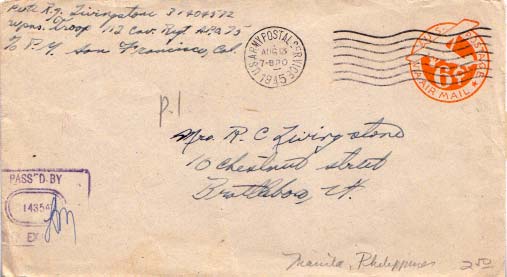 Pvt. R.G. Livingstone 31404572
Wpns. Troop 112 Cav. Rgt APO 75
% P.M. San Francisco, Cal.
U.S. ARMY POSTAL SERVICE
AUG
1945
U.S. POSTAGE
6¢
VIA AIR MAIL
p.1
Mrs. R. C Livingstone
10 Chestnut street
Brattleboro, Vt.
PASSED BY
EX
Manila, Philippines
2.50